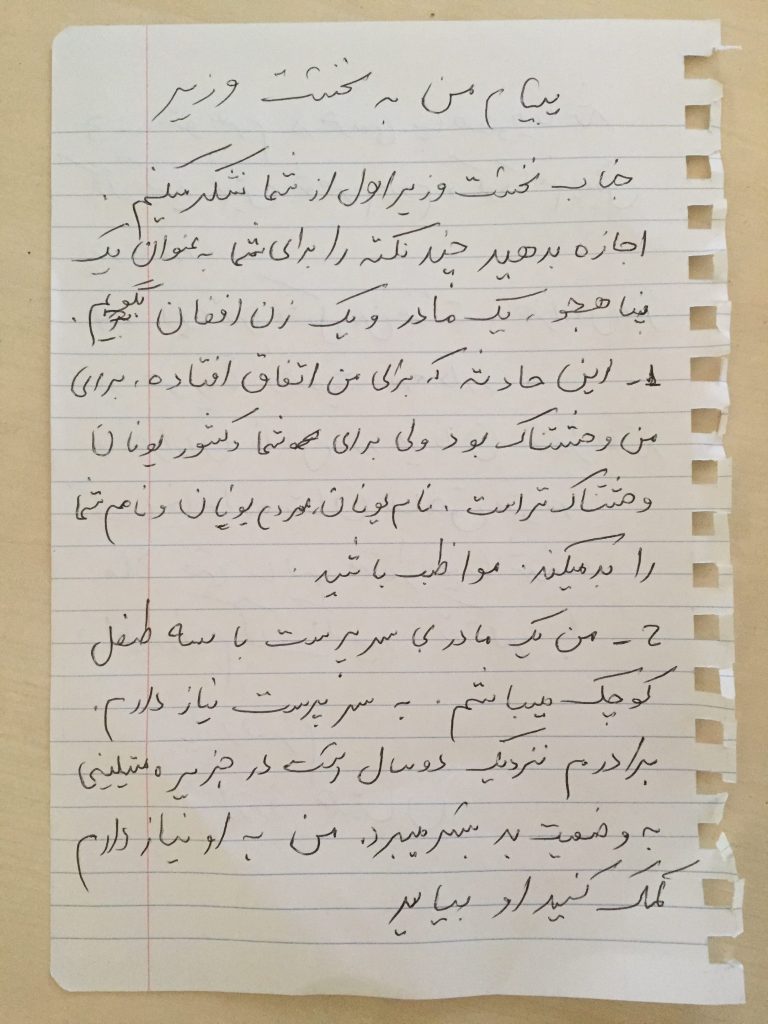 پیام من به نخست وزیر
جناب نخست وزیر اول از شما تشکر میکنم.
اجازه بدهید چند نکته را برای شما به عنوان یک
پناهجو، یک مادر و یک زن افغان بگویم.
1- این حادثه که برای من اتفاق افتاده، برای
من وحشتناک بود ولی برای شما و کشور یونان
وحشتناک تر است. نام یونان، مردم یونان و نام شما
را بد میکند. مواظب باشید.
2- من یک مادر بی سرپرست با سه طفل
کوچک میباشم. به سرپرست نیاز دارم.
برادرم نزدیک دو سال است در جزیره میتیلینی
به وضعیت بد بسر میبرد. من به او نیاز دارم
کمک کنید او بیاید